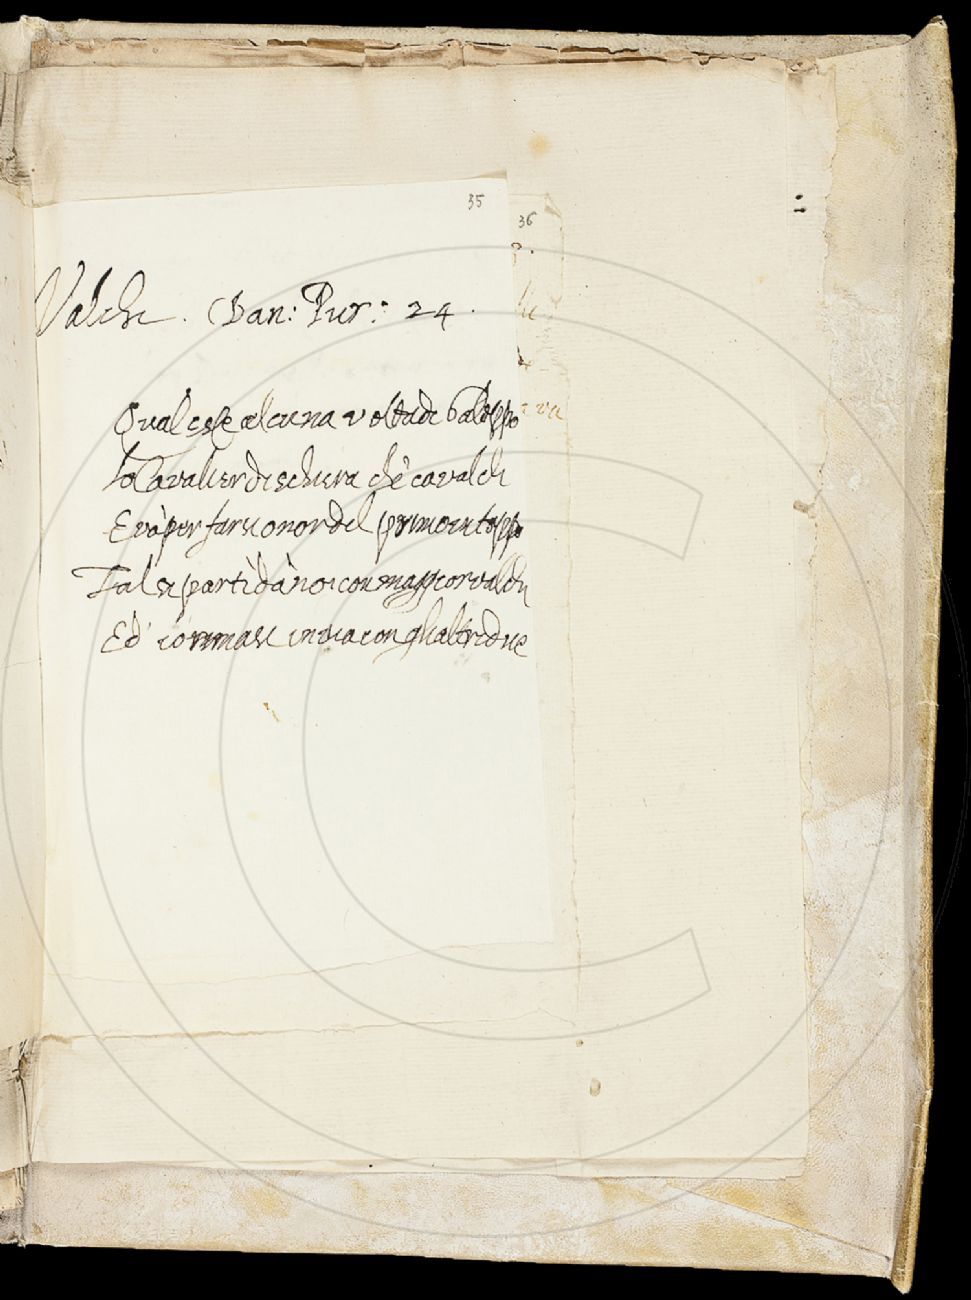 35
36
Valchi. Dan: Pur: 24.
Qual esce alcuna volta di Galoppo
Lo Cavalier di schiera che cavalchi
E và per farsi onor del primo intoppo
Tal si partì dà noi con maggior valchi
Ed io rimasi in via con gli altri due